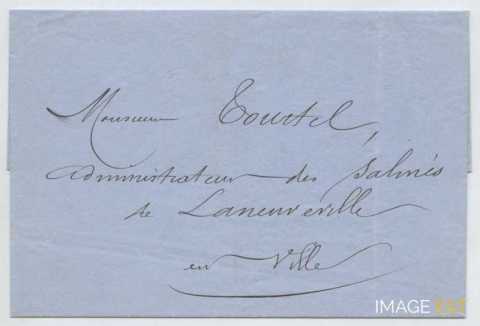 Monsieur Tourtel,
administrateur des Salines
de Laneuveville
en Ville
IMAGE'EST